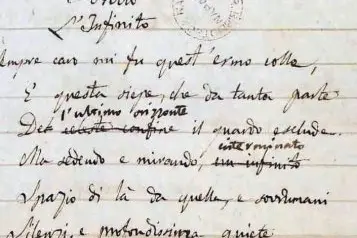 L'Infinito
empre caro mi fu quest'ermo colle,
E questa siepe, che da tanta parte
l'ultimo orizzonte
Del celeste confine il guardo esclude.
interminato
Ma sedendo e mirando, un infinito
Spazio di là da quella, e sovrumani
Silenzi, e profondissima quiete